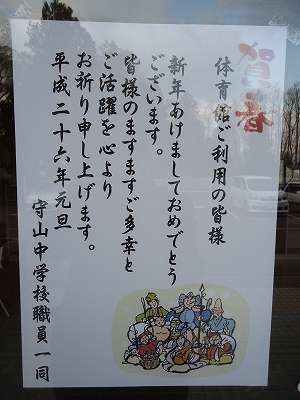 賀春
体育館ご利用の皆様
新年あけましておめでとう
ございます。
皆様のますますご多幸と
ご活躍を心より
お祈り申し上げます。
平成二十六年元旦
守山中学校職員一同